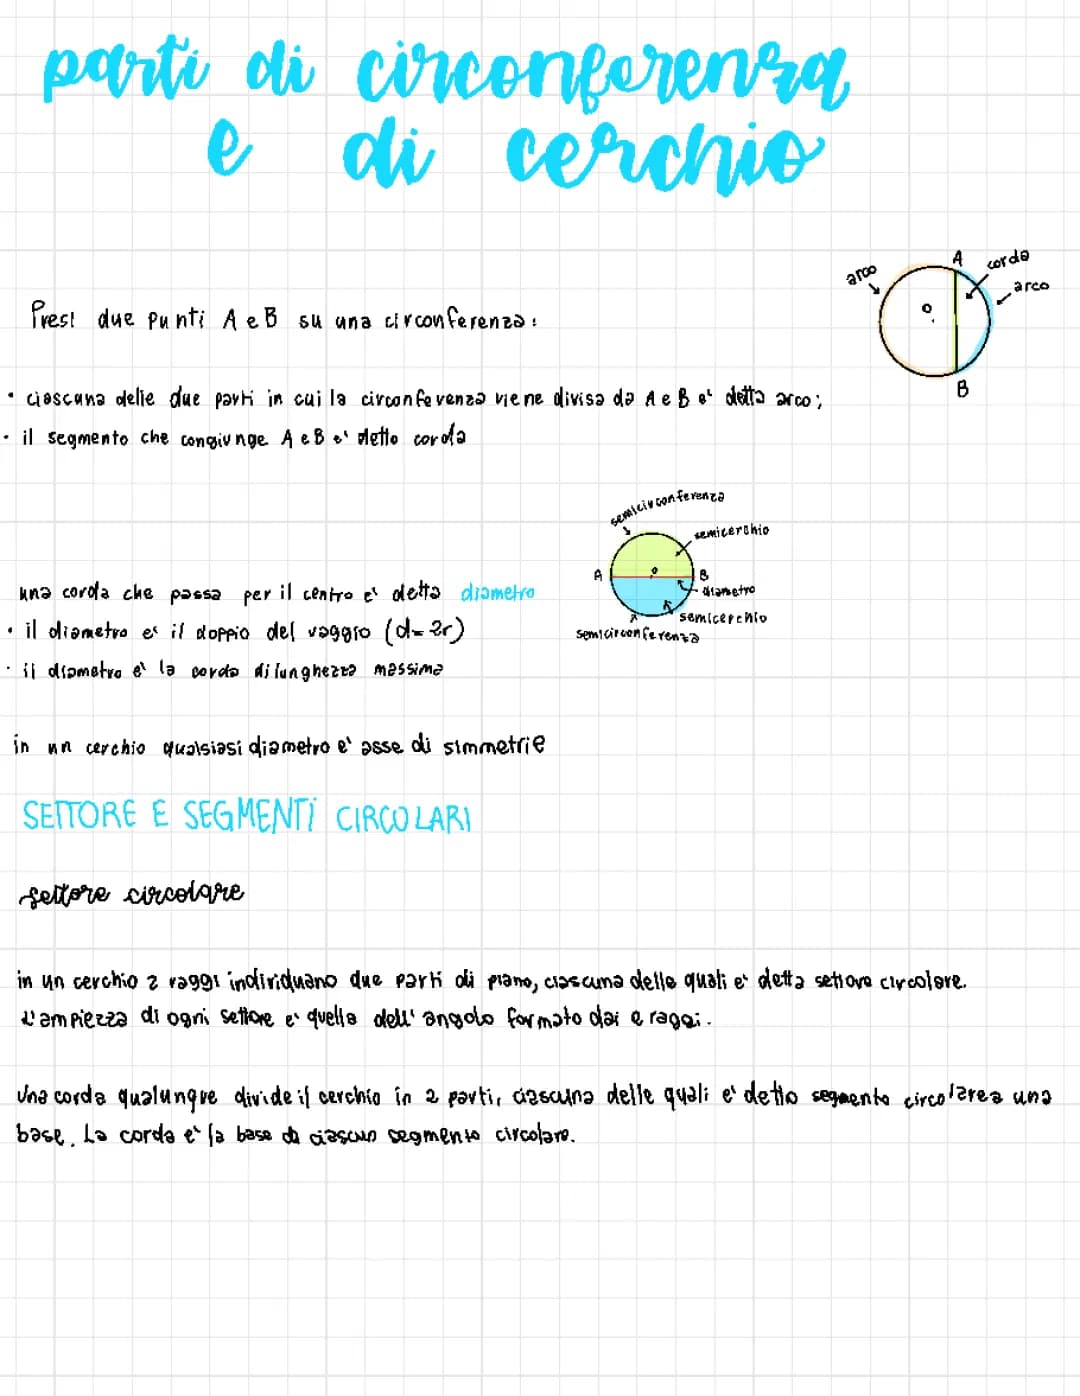 parti di circonferenza
e di cerchio
Presi due punti A e B su una circonferenza:
A
corda
arco
arco
O
B
• ciascuna delle due parti in cui la circonferenza viene divisa da A e B e' detta arco;
• il segmento che congiunge A e B e' detto corda
semicirconferenza
semicerchio
A
O
B
diametro
semicerchio
semicirconferenza
una corda che passa per il centro e' detta diametro
• il diametro e' il doppio del raggio (d=2r)
• il diametro e' la corda di lunghezza massima
in un cerchio qualsiasi diametro e' asse di simmetrie
SETTORE E SEGMENTI CIRCOLARI
settore circolare
in un cerchio 2 raggi individuano due parti di piano, ciascuna delle quali e' detta settore circolare.
L'ampiezza di ogni settore e' quella dell'angolo formato dai e raggi.
Una corda qualunque divide il cerchio in 2 parti, ciascuna delle quali e' detto segmento circolarea una
base. La corda e' la base di ciascun segmento circolare.